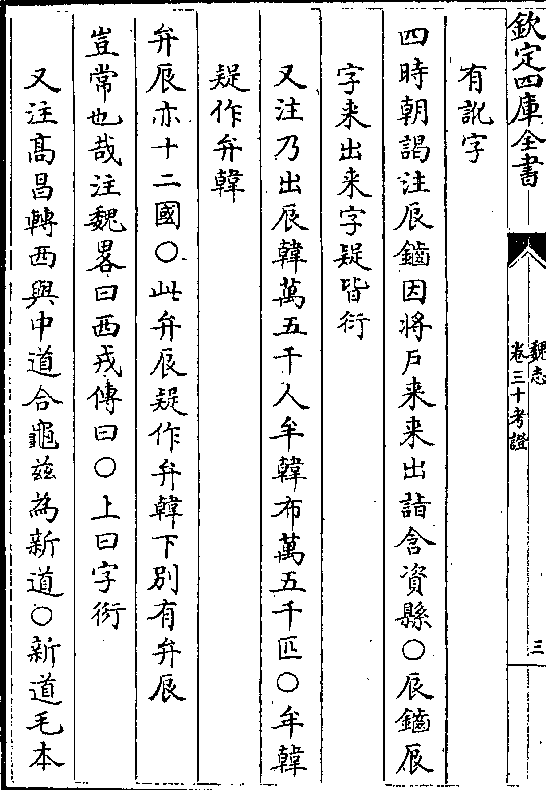 欽定四庫全書
魏志
卷三十考證
三
有訛字
四時朝謁注辰鑡因將戶来来出詣含資縣○辰鑡辰
字来出来字疑皆衍
又注乃出辰韓萬五千人牟韓布萬五千匹○牟韓
疑作弁韓
弁辰亦十二國○此弁辰疑作弁韓下別有弁辰
豈常也哉注魏畧曰西戎傳曰○上曰字衍
又注髙昌轉西與中道合龜兹為新道○新道毛本